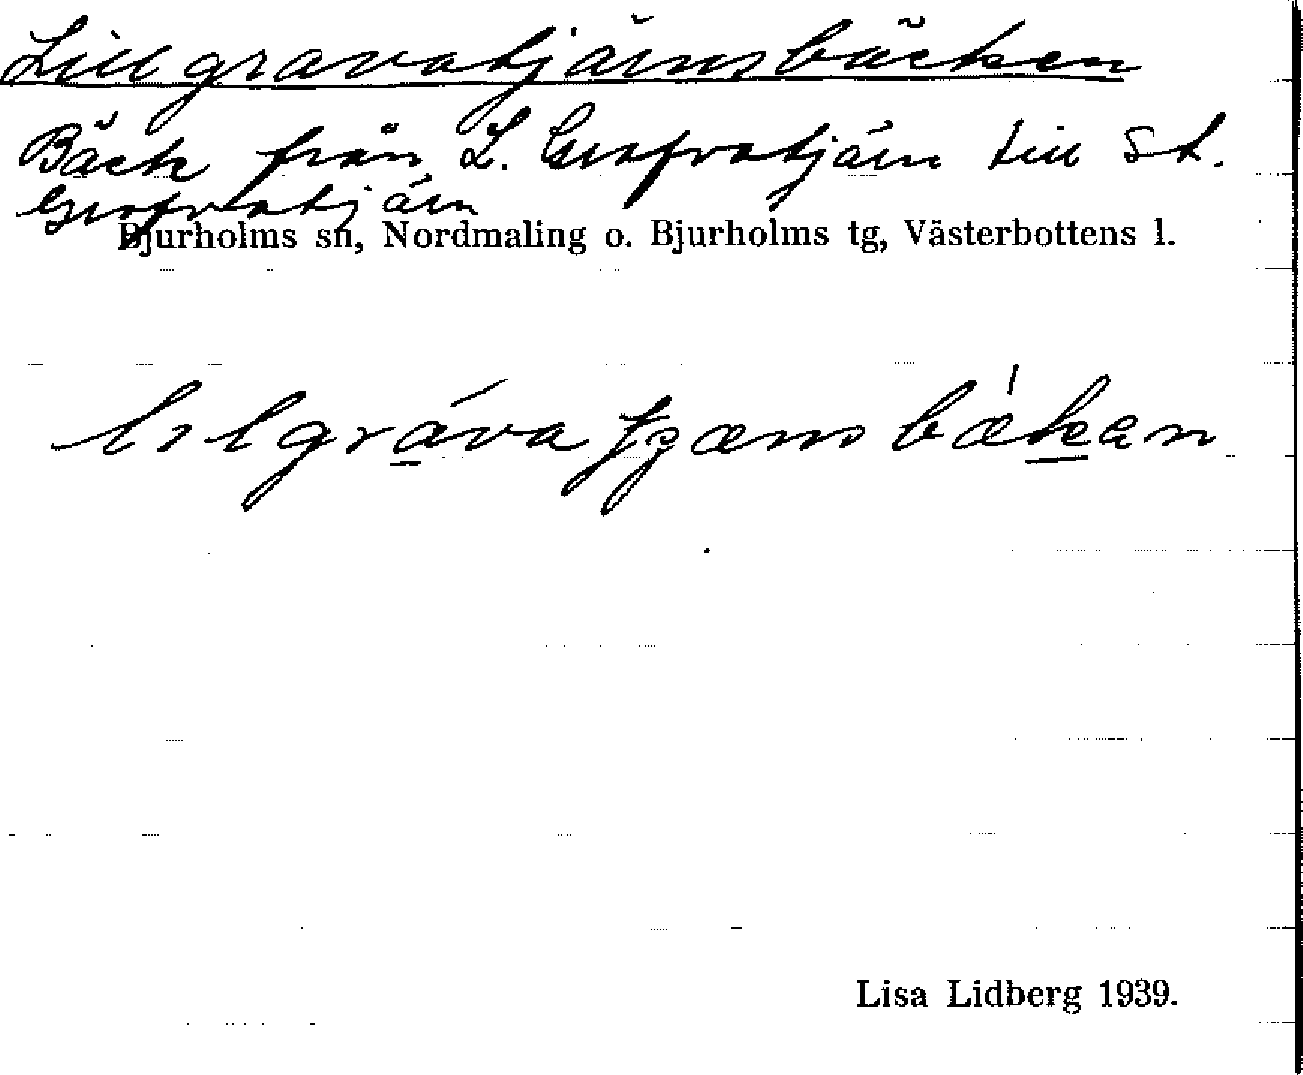 Lillgravatjärnsbäcken
Bäck från L. Grafvatjärn till St.
Grafvatjärn
Bjurholms sn, Nordmaling o. Bjurholms tg, Västerbottens l.
Lisa Lidberg 1939.